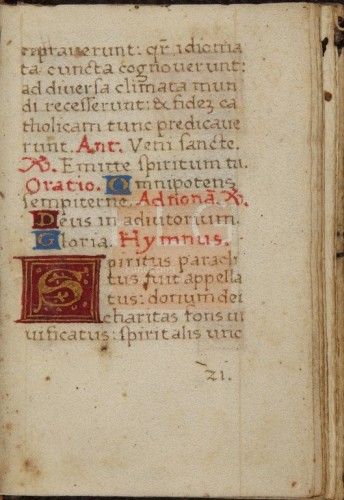 ептraverunt: qr̃ idioma
ta cuncta cognoverunt:
ad diversa climata mun
di recesserunt: & fidez ca
tholicam tunc predicave
runt. Ant. Veni sancte.
℣. Emitte spiritum tu.
Oratio. Omnipotens
sempiterne. Ad nonã. ℣.
Deus in adiutorium.
Gloria. Hymnus.
Spiritus paracli
tus fuit appella
tus: donum dei
charitas fons vi
vificatus: spiritalis unc
21.